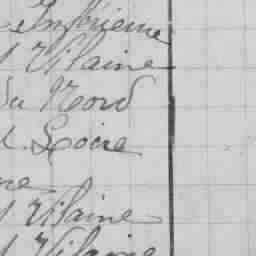 Inférieure
Vilaine
du Nord
Loire
ne
Vilaine
Vilaine